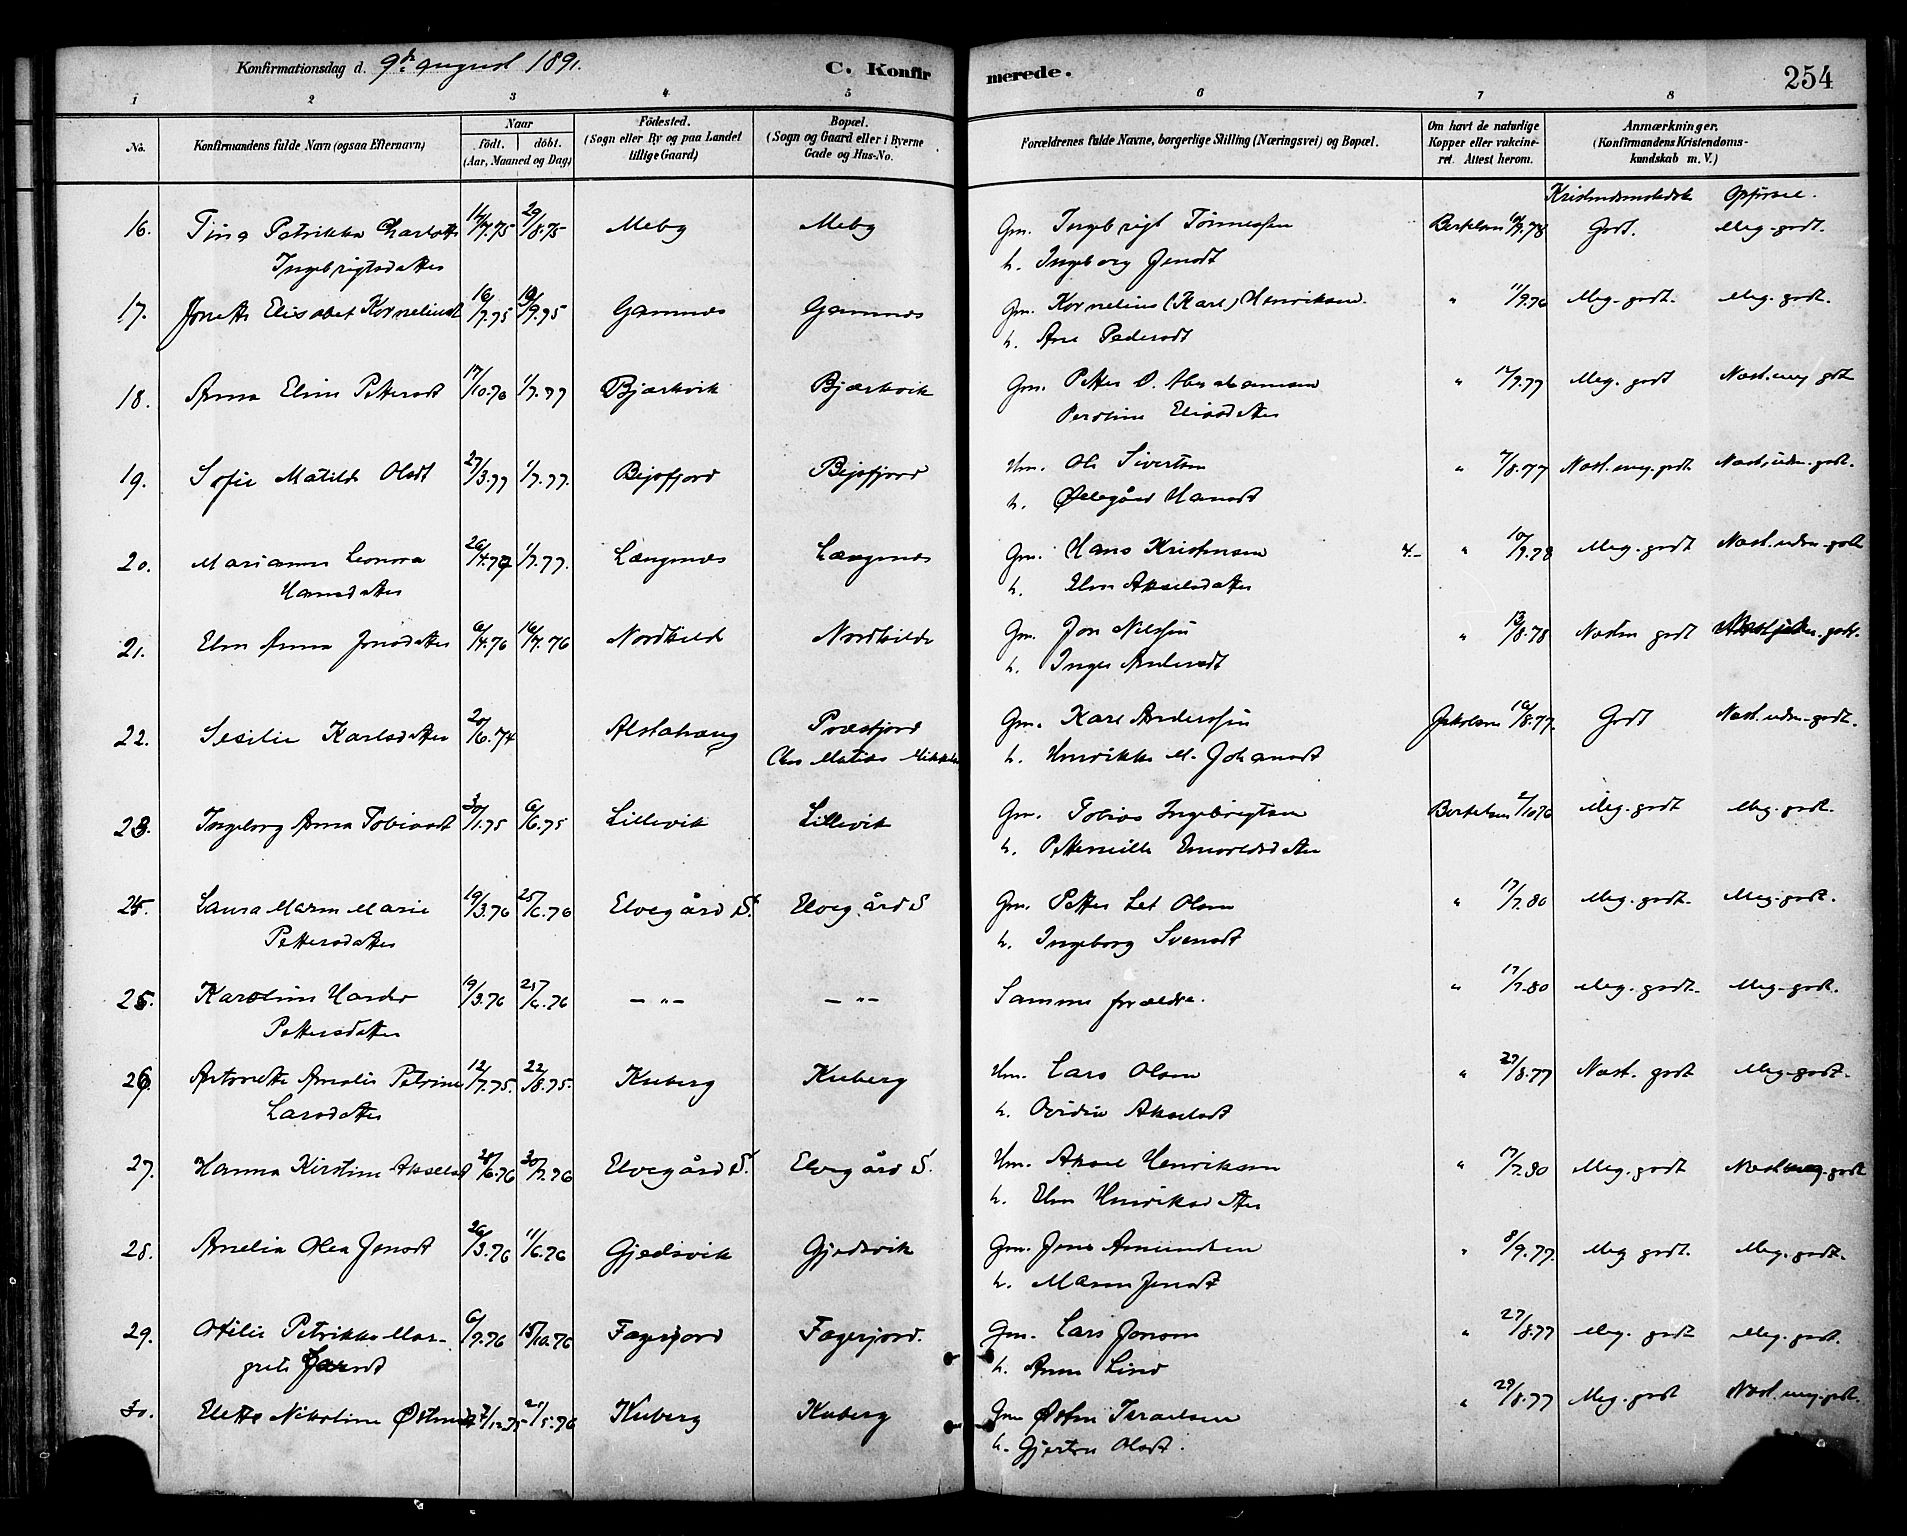 Konfirmationsdag d. 9de august 1891.
C. Konfirmerede.
254
1 2 3 4 5 6 7 8
No.
Konfirmandens fulde Navn (ogsaa Efternavn)
Naar
födt. döbt.
(Aar, Maaned og Dag)
Födested.
(Sogn eller By og paa Landet
tillige Gaard)
Bopæl.
(Sogn og Gaard eller i Byerne
Gade og Hus-No.
Forældrenes fulde Navne, borgerlige Stilling (Næringsvei) og Bopæl.
Om havt de naturlige
Kopper eller vakcine-
ret. Attest herom.
Anmærkninger.
(Konfirmandens Kristendoms-
kundskab m. V.)
Opførsel.
16. Tina Petrikka Charlotte 14/7.75 29/8.75 Meby Meby Gm. Ingebrigt Tønnessen Bertelsen 78 Godt. Meg. godt.
Ingebrigtsdatter h. Ingeborg Jensdt
17. Jonette Elisabet Korneliusdt 16/7.75 19/9.75 Gamnes Gamnes Gm. Kornelius (Karl) Henriksen " 11/9.76 Meg. godt. Meg. godt.
h. Ane Pedersdt
18. Anna Elina Pettersdt 17/10.76 1/7.77 Bjærkvik Bjærkvik Gm. Petter D. Abrahamsen " 12/7.77 Meg. godt Næst. meg godt
Peroline Eliasdatter
19. Sofie Matilde Olsdt 27/3.77 1/7.77. Beisfjord Beisfjord Um. Ole Sivertsen " 7/8.77 Næst. meg. godt Næst. udm. godt.
h. Øllegård Hansdt
20. Marianne Leonora 26/4.77 1/7.77. Længenes Længenes Gm. Hans Kristensen 4.- " 78 Meg. godt Næst. udm. godt
Hansdatter h. Elen Akselsdatter
21. Elen Anna Jonsdatter 6/4.76 16/7.76 Nordkilde Nordkilde Gm. Jon Nilssen " 13/8.78 Næsten godt Næst. udm. godt.
h. Inger Andersdt
22. Sesilie Karlsdatter 20/6.74 Alstahaug Præstjord Gm. Karl Anderssen Jakobsen 16/8.77. Godt Næst. udm. godt.
Matias h. Henrikke M. Johansdt
23. Ingeborg Anna Tobiasdt 30/1.75 6/6.75 Lillevik Lillevik Gm. Tobias Ingebrigtsen Bertelsen 2/10 76 Meg. godt Meg. godt.
h. Petternille Enevoldsdatter
24. Laura Maren Marie 19/3.76 25/6.76 Elvegård S. Elvegård S Gm. Petter Let Olsen " 17/7.80 Meg. godt. Meg. godt.
Pettersdatter h. Ingeborg Svensdt
25. Karoline Hardes 19/3.76 25/6.76 – " – – " – Samme forældre. " 17/7.80 Meg. godt. Meg. godt.
Pettersdatter
26. Antonette Amalie Petrine 12/7.75. 22/8.75. Kuberg Kuberg Um. Lars Olsen " 27/8.77 Næst. godt Meg. godt.
Larsdatter h. Ovidia Akselsdt
27. Hanna Kirstine Akselsdt 28/6.76 30/7.76 Elvegård S. Elvegård S. Um. Aksel Henriksen " 17/7.80 Meg. godt Næst meg. godt
h. Elen Henriksdatter
28. Amelia Olea Jensdt 26/3.76 11/6.76 Gjedsvik Gjedsvik Gm. Jens Amundsen " 8/9.77. Meg godt. Meg. godt.
h. Maren Jensdt
29. Otilie Petrikke Mar- 6/7.76 15/10.76 Fagerjord Fagerjord. Gm. Lars Jonsen " 27/8.77 Meg. godt Meg. godt.
grete h. Anna Lind
30. Elette Nikoline 21/5.76 Kuberg Kuberg Gm Østen Israelsen " 29/8.77 Meg. godt Næst. meg. godt.
h. Gjertru Olsdt.